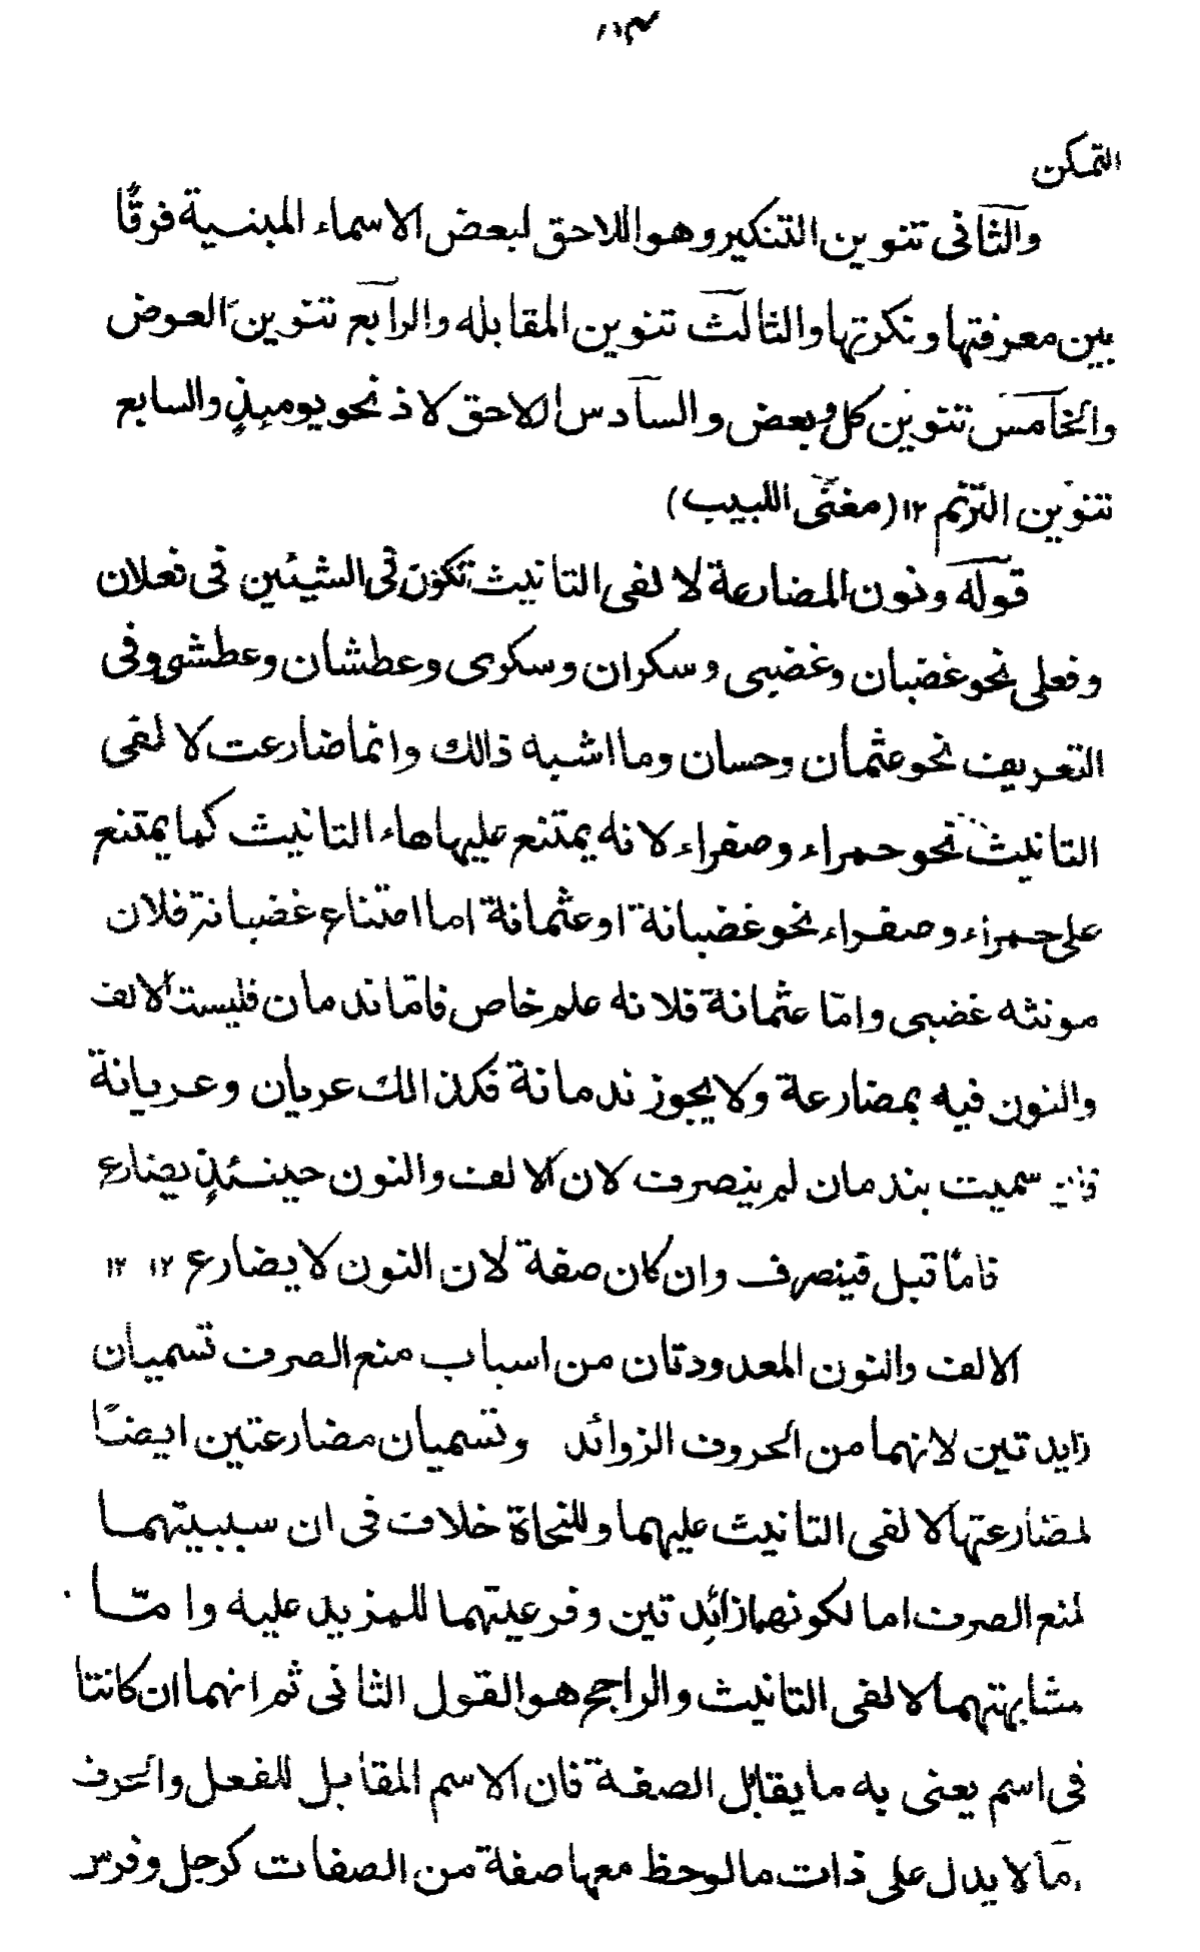 التمكن
والثانى تنوين التنكير وهو اللاحق لبعض الاسماء المبنسية فرقًا
بين معرفتها ونكرتها والثالث تنوين المقابله والرابع تنوين العوض
والخامس تنوين كل وبعض والسادس الاحق لاذ نحو يومئِذٍ والسابع
تنوين الترنم ١٢ (مغنى اللبيب)
قوله ونون المضارعة لا لفى التانيث تكون فى الشيئين فى فعلان
وفعلى نحو غضبان وغضبى وسكران وسكرى وعطشان وعطشى وفى
التعريف نحو عثمان وحسان وما اشبه ذالك وانما ضارعت لا لفى
التانيث نحو حمراء وصفراء لانه يمتنع عليها هاء التانيث كما يمتنع
على حمراء وصفراء نحو غضبانة او عثمانة اما امتناع غضبانة فلان
مونثه غضبى وامّا عثمانة فلانه علم خاص فامّا ندمان فليست الالف
والنون فيه بمضارعة ولا يجوز ندمانة فكذالك عريان وعريانة
سميت بندمان لم ينصرف لان الالف والنون حينئذٍ يضارع
فامّا قبل فينصرف وان كان صفة لان النون لا يضارع ١٢ ١٢
الالف والنون المعدودتان من اسباب منع الصرف تسميان
زايدتين لانهما من الحروف الزوائد وتسميان مضارعتين ايضًا
لمضارعتها لا لفى التانيث عليهما وللنحاة خلاف فى ان سببيتهما
لمنع الصرف اما لكونهما زائدتين وفرعيتهما للمزيد عليه وامّا
مشابهتهما لا لفى التانيث والراجح هو القول الثانى ثم انهما ان كانتا
فى اسم يعنى به ما يقابل الصفة فان الاسم المقابل للفعل والحرف
ما لا يدل على ذات ما لوحظ معها صفة من الصفات كرجل وفرس